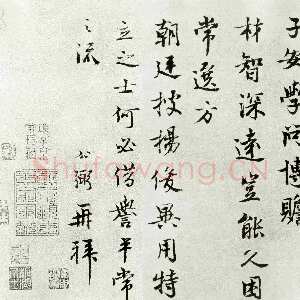 子安学问博贍
材智深達豈能久困
常選方
朝廷披楊俊異用特
立之士何必借譽平常
之流
公弼再拜
Shufawang.CN